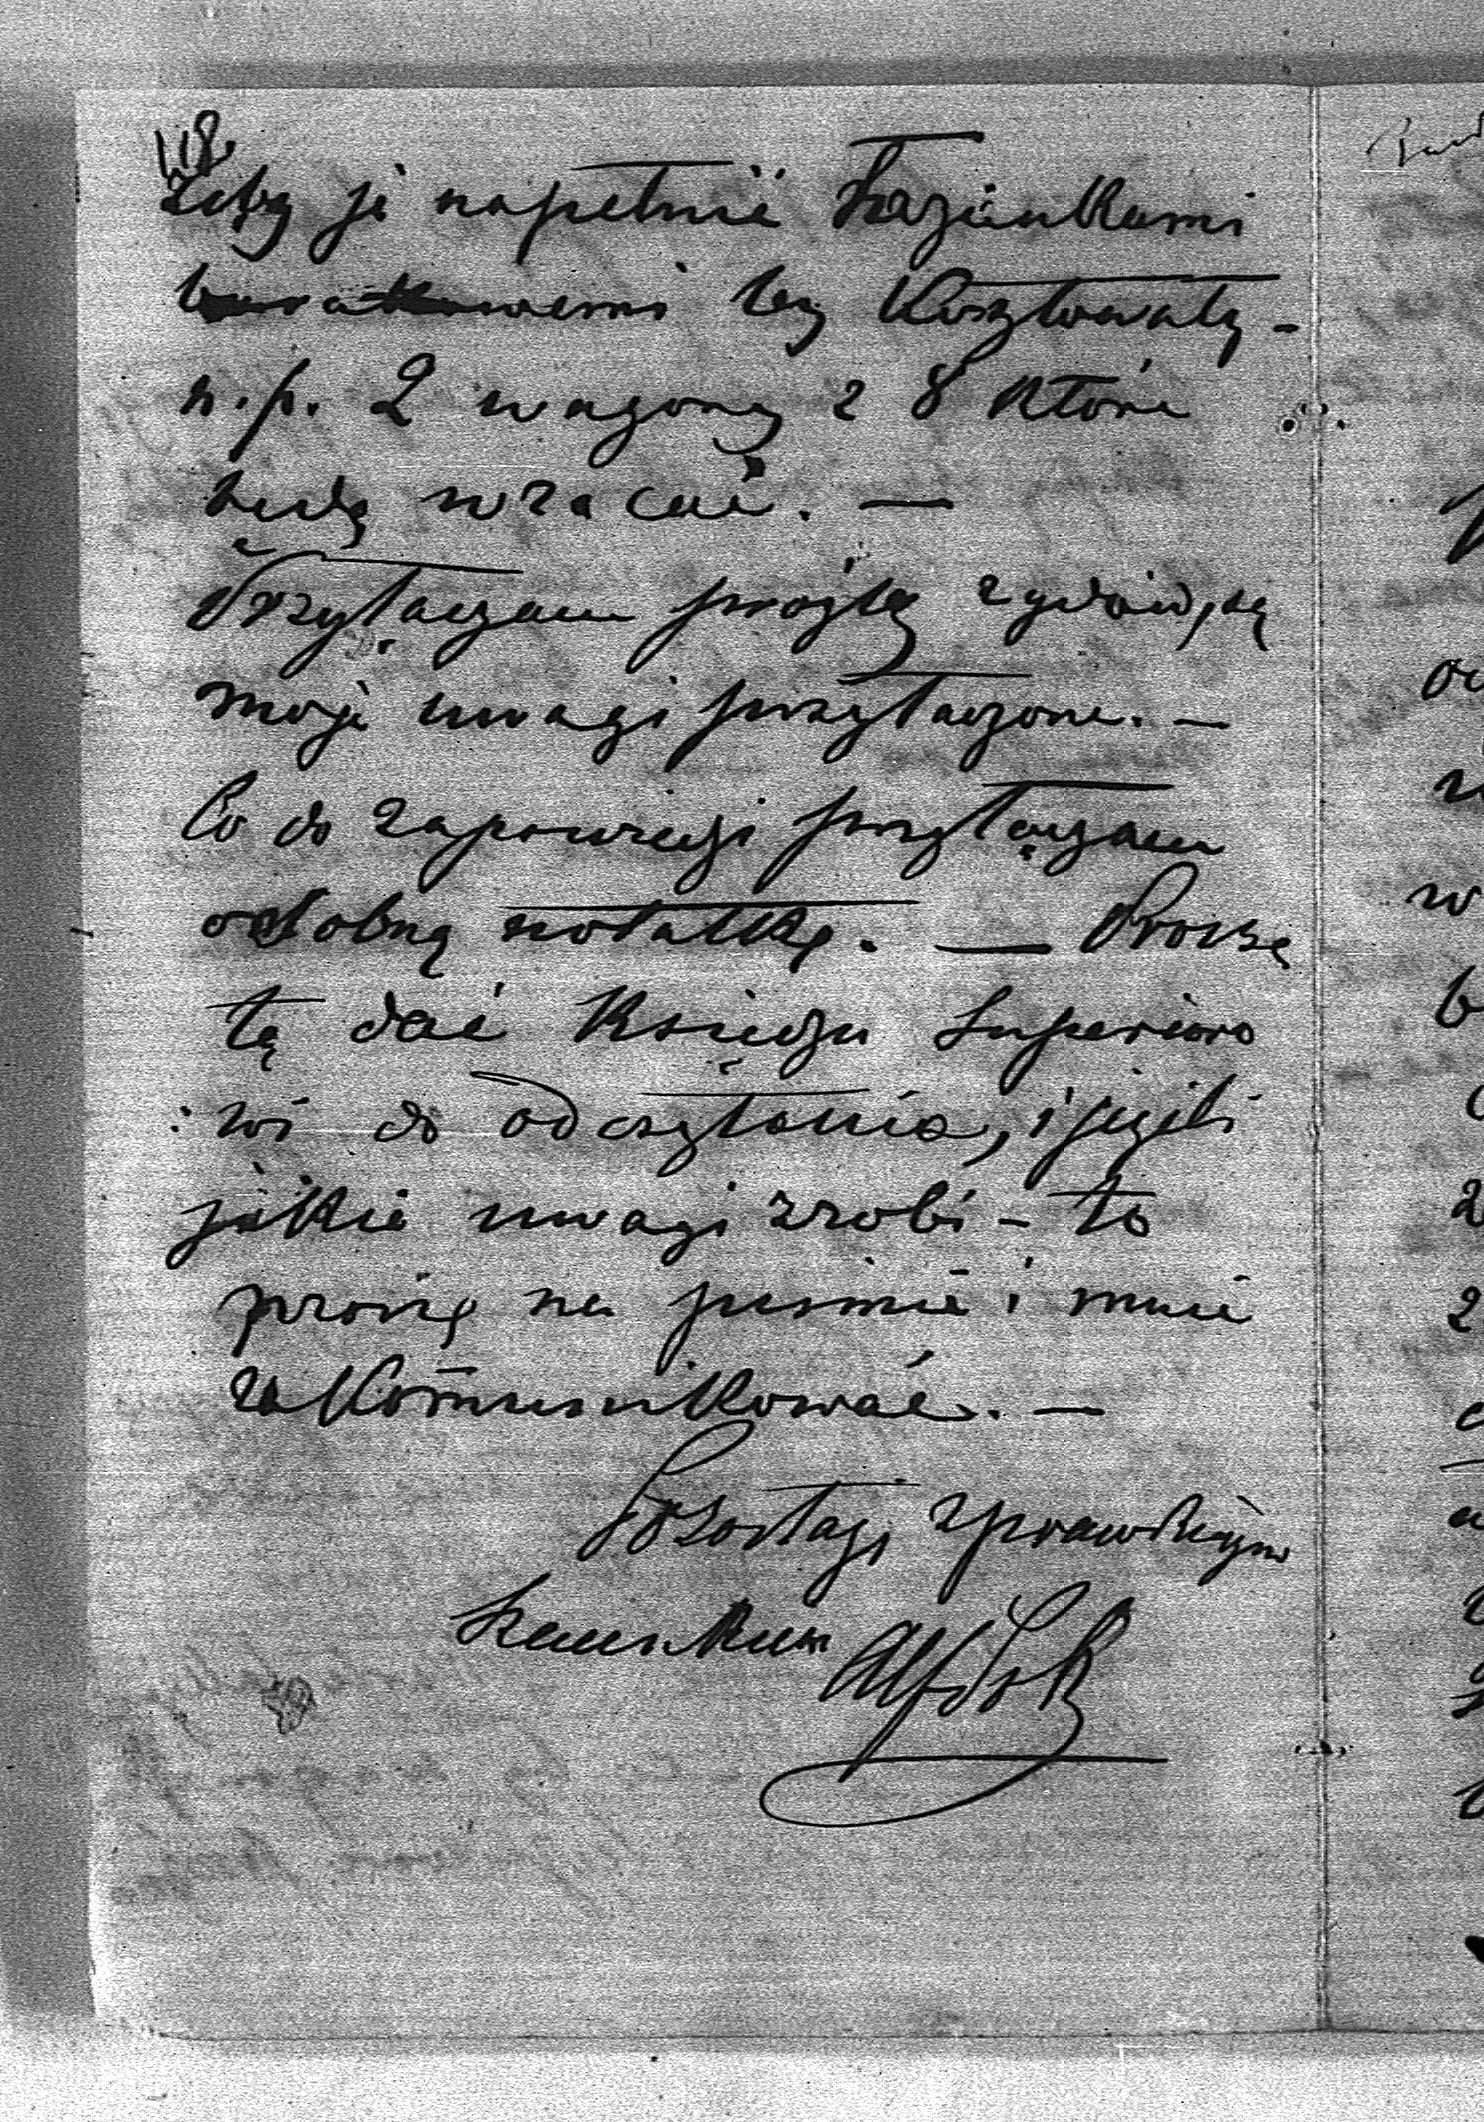 118.
żeby je napełnić
by kosztowały –
n.p. 2 wagony z 8 które
będą wracać. –
Przyłączam prośbę
moje uwagi przyłączone. –
Co do zapowiedzi przyłączam
osobną notatkę. — Proszę
tę dać Księdzu Superioro
: wi do odczytania, i jeżeli
jakie uwagi zrobi – to
proszę na piśmie i mnie
zakom̄unikować. –
Pozostaję z prawdziwym
szacunkiem